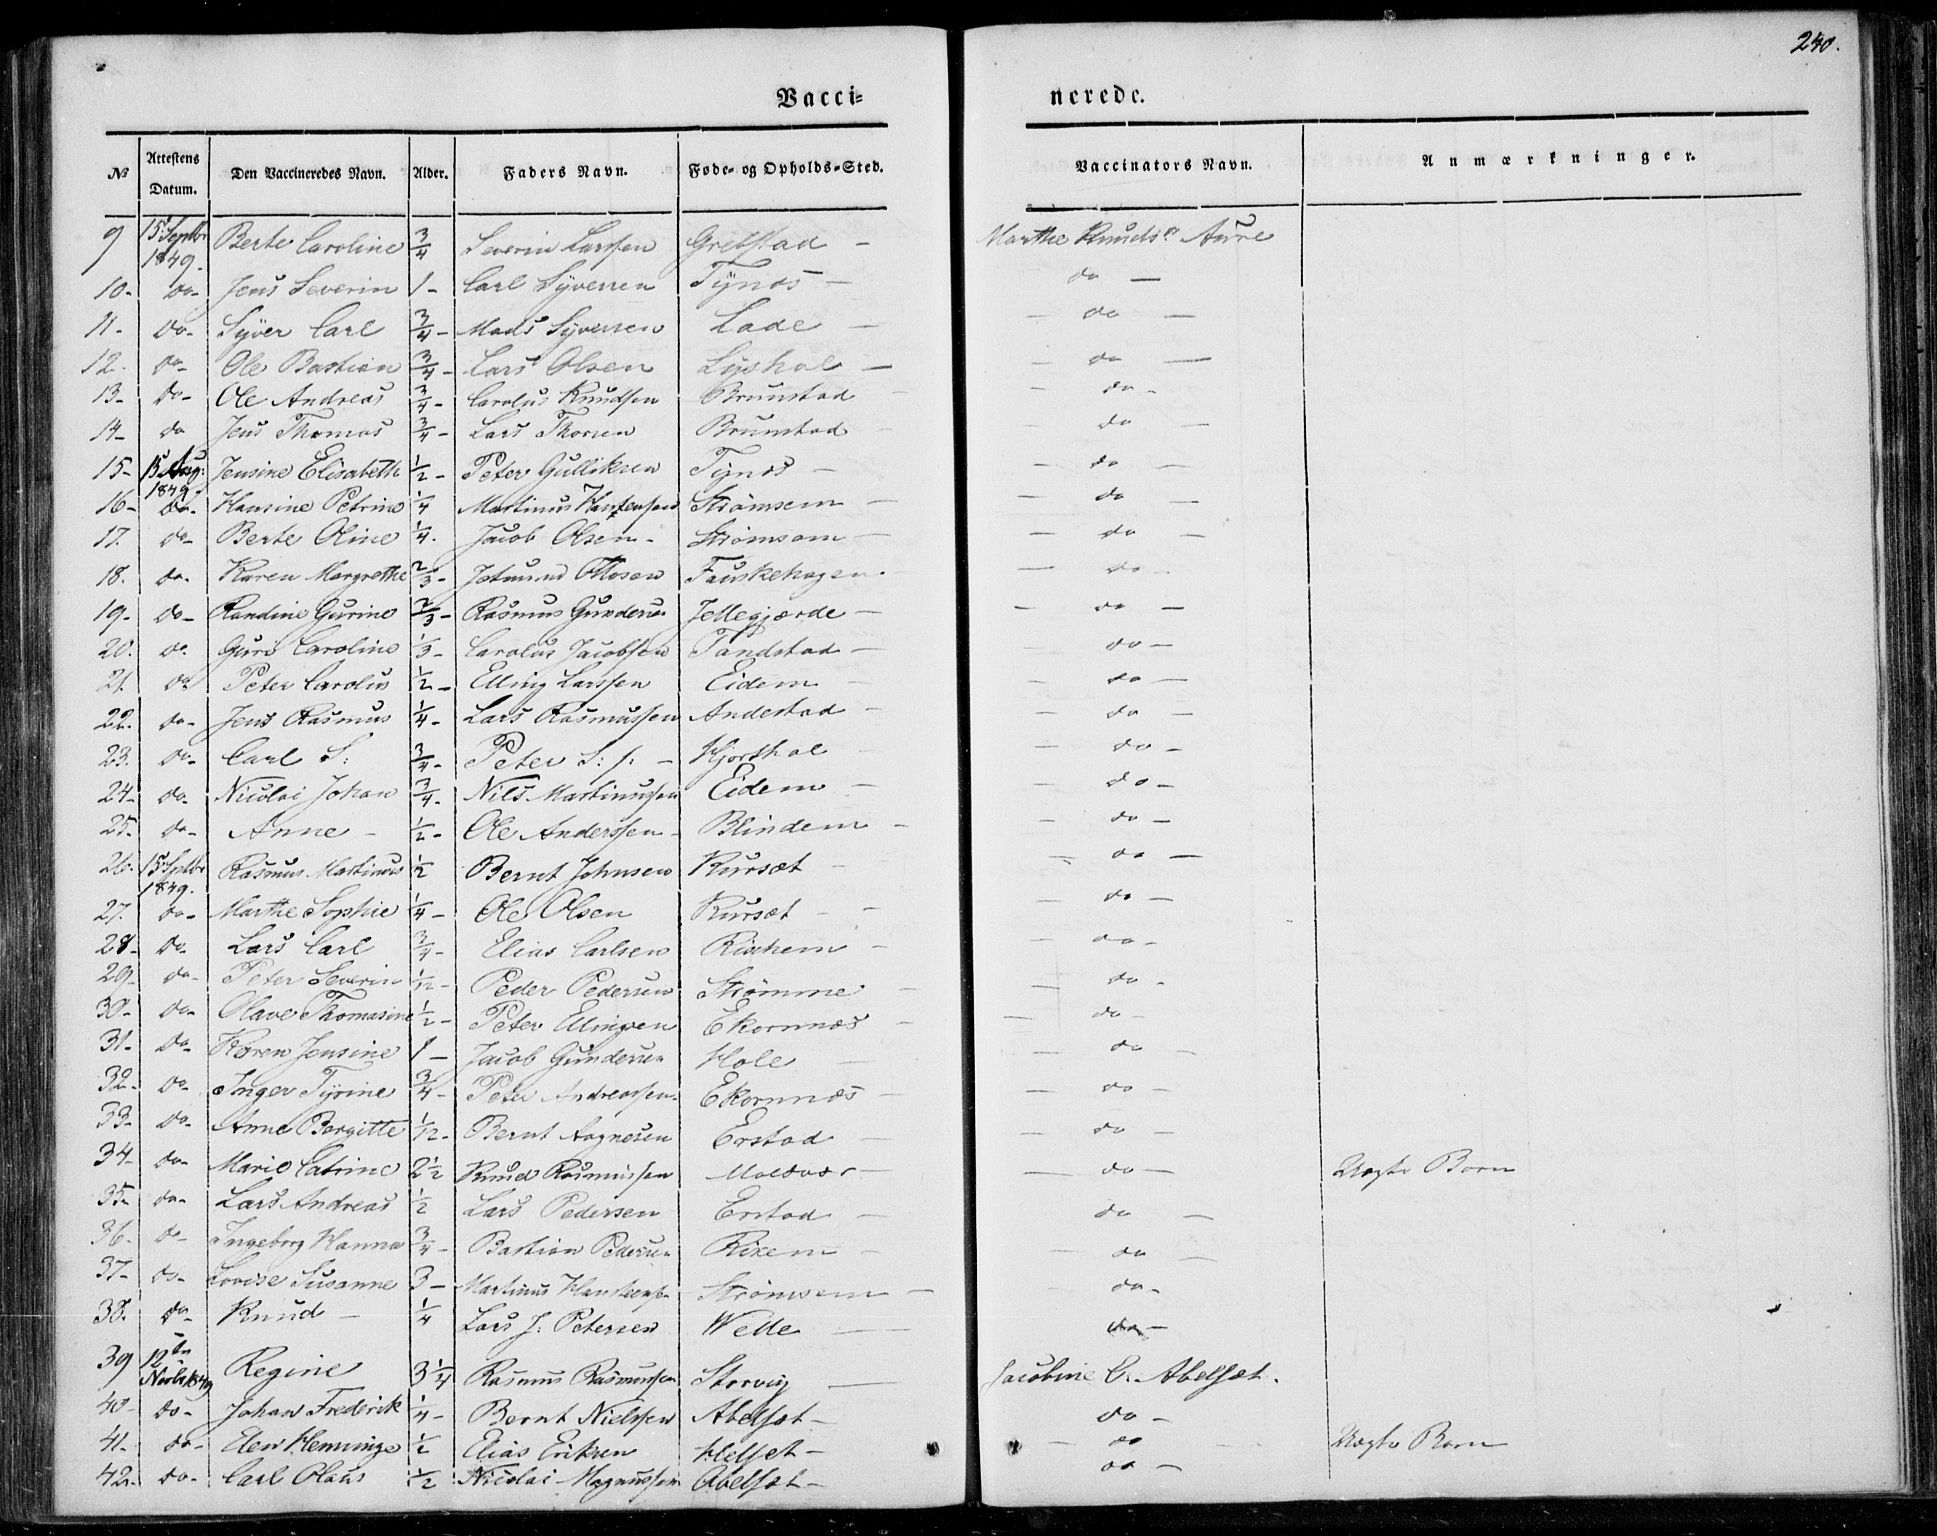 240.
Vacci= nerede.
No Attestens Datum. Den Vaccineredes Navn. Alder. Faders Navn. Føde- og Opholds-Sted. Vaccinators Navn. Anmærkninger.
9 15 Septbr 1849. Berte Caroline 3/4 Severin Larssen Grebstad - Marthe Knudsn Aure
10- do- Jens Severin 1- Carl Syversen Tynæs - do -
11- do- Syver Carl 3/4- Mads Syversen Lade - - do -
12. do- Ole Bastian 3/4- Lars Olsen Lyshol - - do -
13- do- Ole Andreas 3/4- Carolus Knudsen Brunstad - - do -
14- do Jens Thomas 3/4- Lars Thorsen Brunstad - - do -
15- 15 Aug: 1849. Jensine Elisabeth 1/2- Peter Gulliksen Tynæs - - do -
16- do- Hansine Petrine 1/4 Martinus Hanssen Strømsem - - do -
17. do- Berte Oline 1/4. Jacob Olsen- Strømsem - - do -
18. do- Karen Margrethe 2/3- Jetmund Ottosen Fauskehagen. - do -
19- do- Randine Gurine 2/3- Rasmus Gundersen Jellegjærde - - do -
20. do. Guri Caroline 1/3- Carolus Jacobsen Tandstad - do -
21. do Peter Carolus 1/2- Elling Larssen Eidem - - do -
22. do- Jens Rasmus 1/4- Lars Rasmussen Andestad - - do -
23. do- Carl S: 3/4- Peter S: s: - Hjorthol - - do -
24- do- Nicolai Johan 3/4- Nils Martinussen Eidem - - do -
25- do- Anne - 1/2- Ole Anderssen- Blindem - - do -
26. 15 Septbr 1849. Rasmus Martinus 1/2 Bernt Johnsen Kursæt - - do -
27. do- Marthe Sophie 1/4- Ole Olsen Kursæt - - - do -
28- do- Lars Carl 3/4- Elias Carlsen Rishem - - do -
29- do- Peter Severin 1/12- Peder Pedersen Strømme - - do -
30- do- Olave Thomasine 1/2- Peter Ellingsen Ekornnæs - - do -
31- do- Karen Jensine 1- Jacob Gundersen Hole - - do -
32- do- Inger Tyrine 3/4- Peter Andreassen Ekornnæs - - do -
33- do- Anne Bergitte 1/12- Bernt Aagnesen Erstad - - do -
34- do- Marie Catrine 2 1/2 Knud Rasmussen Moldvær - - do - Uægte Barn
35- do- Lars Andreas 1/2 Lars Pedersen Erstad - do -
36. do- Ingeborg Hanna 3/4- Bastian Pedersen Rixem - - do -
37- do- Lovise Susanne 3- Martinus Strømsem - - do -
38. do- Knud - 1/4 Lars J: Petersen Welle - do -
39 12te Novbr 1849 Regine 3 1/4 Rasmus Rasmussen Storvig - Jacobine C. Abelset.
40- do- Johan Frederik 1/4- Bernt Nielssen Abelset - do -
41- do- Elen Henninge 1/2 Elias Eriksen Helset - - do - Uægte Barn
42- do- Carl Olaus 1/2 Nicolai Magnussen Abelset - do -